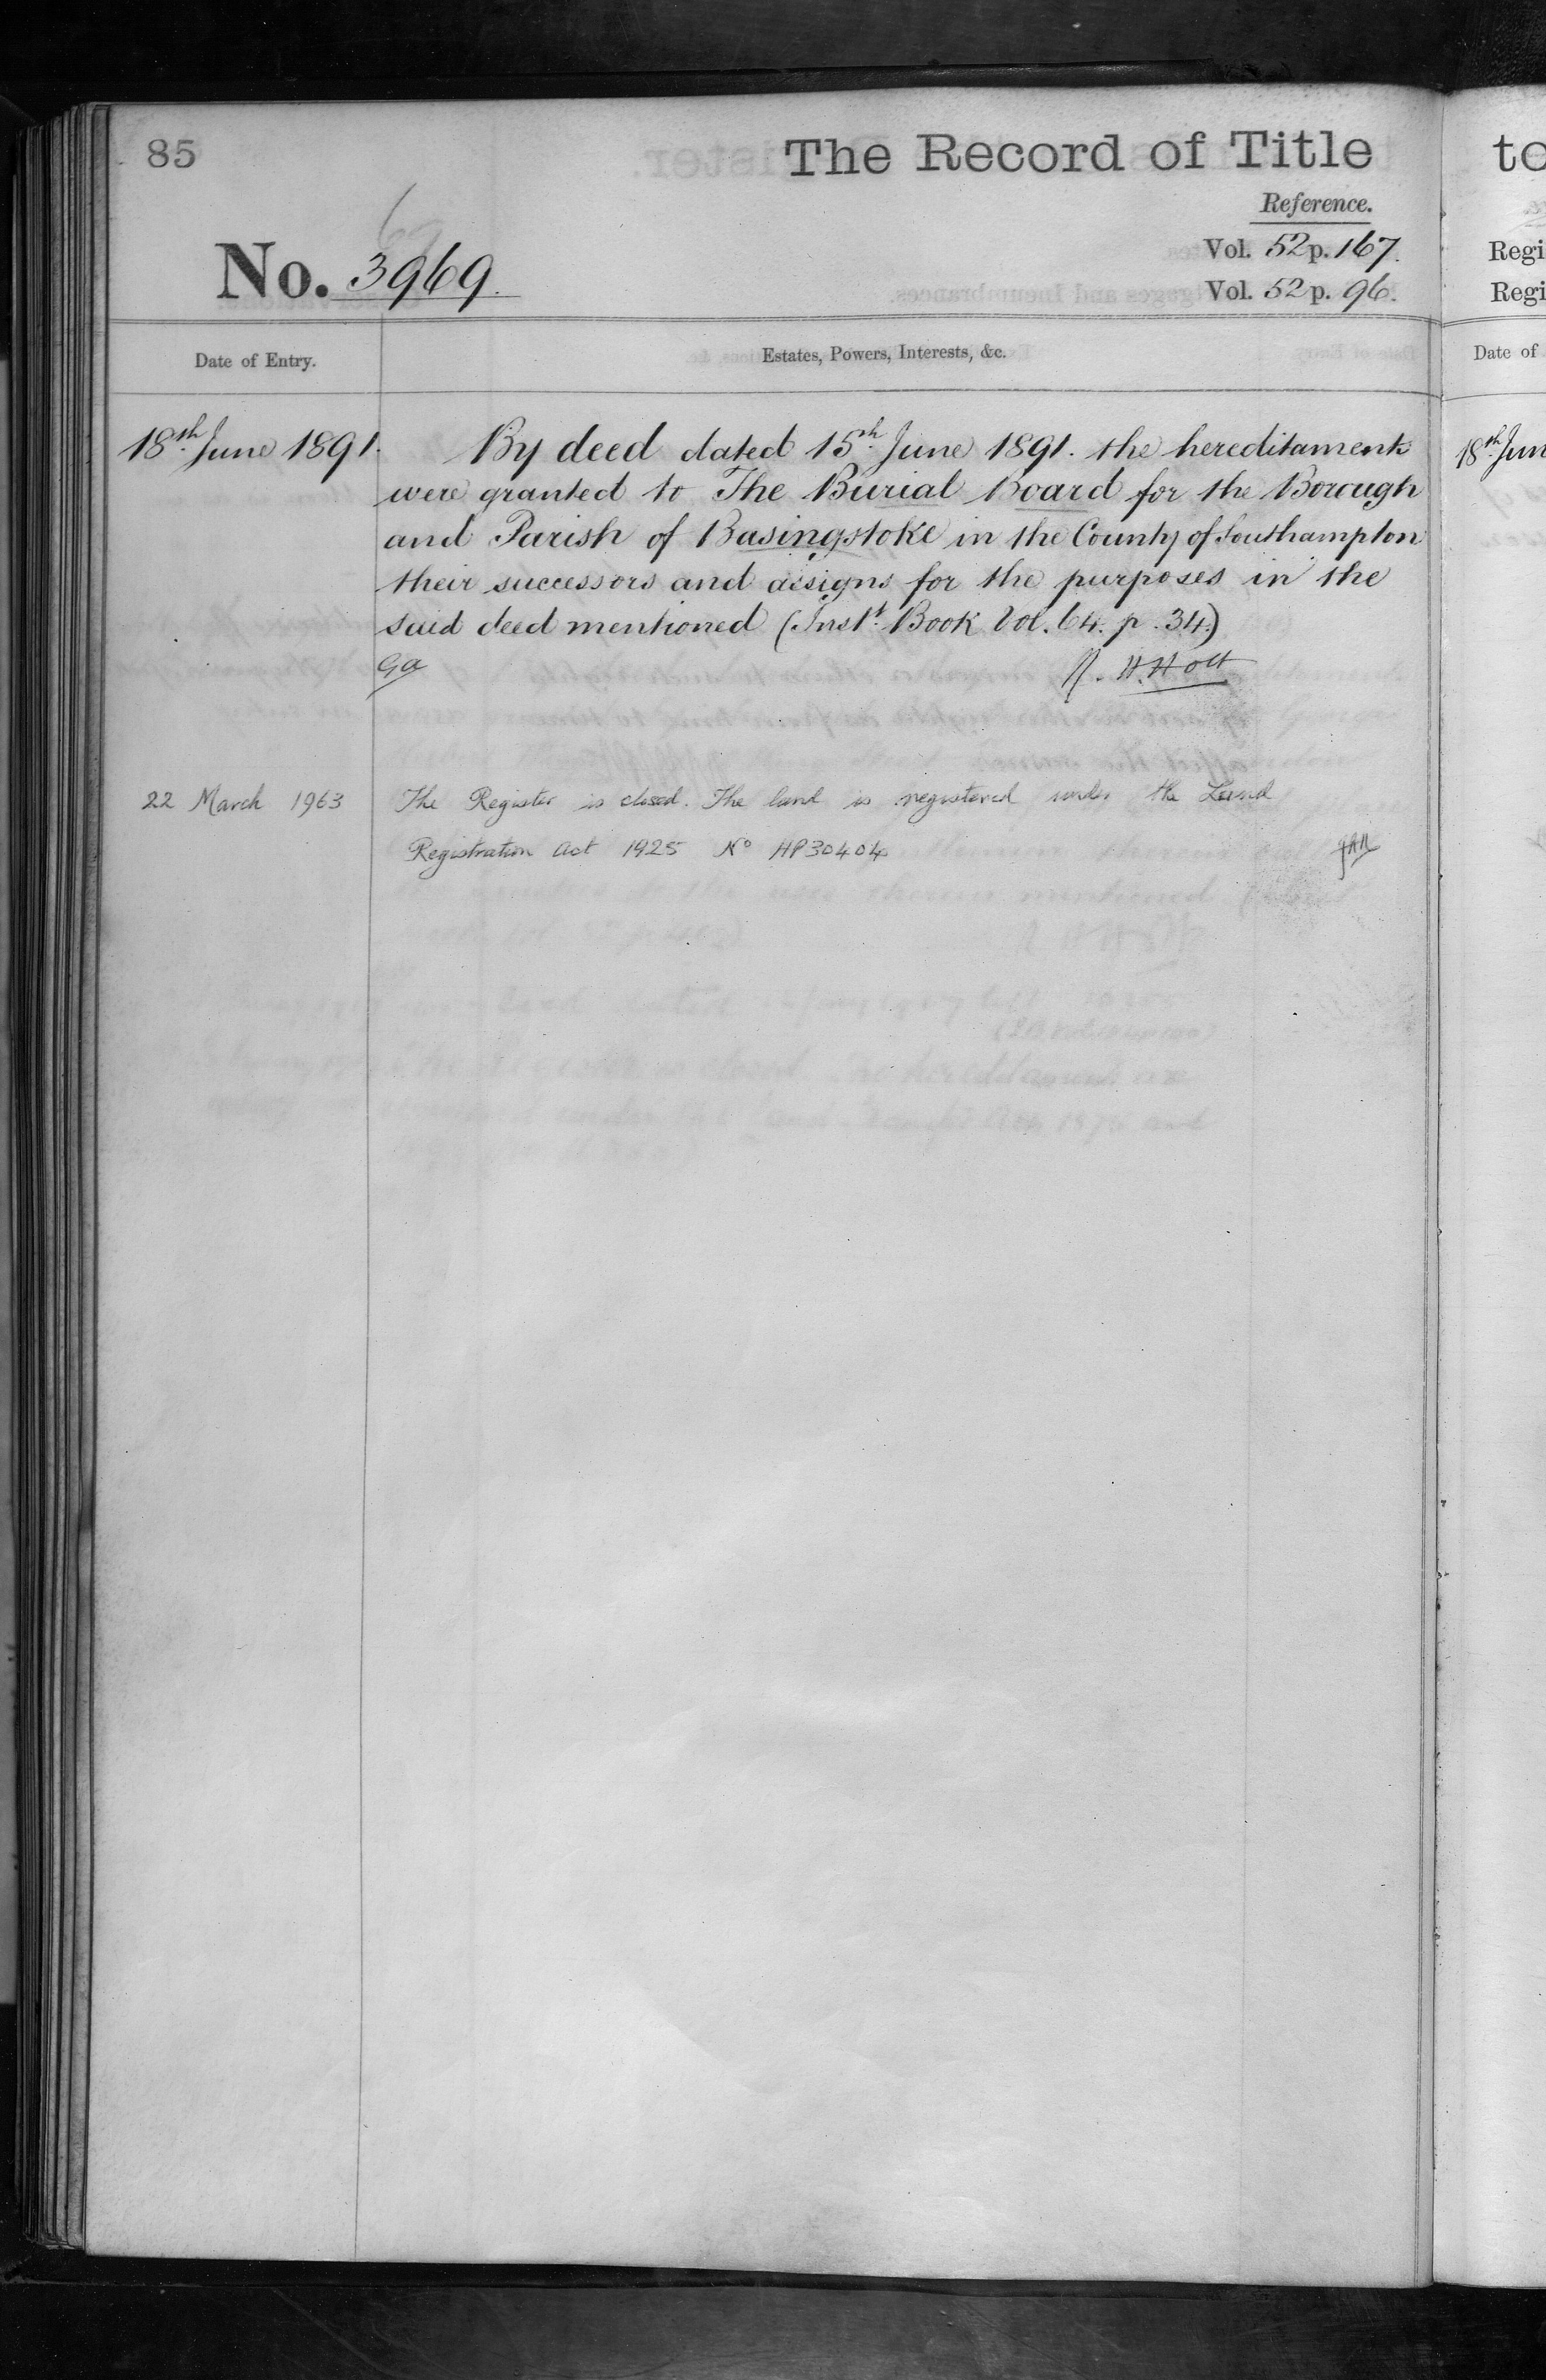 85
The Record of Title
Reference.
No. 3969.
Vol. 52 p. 167.
Vol. 52 p. 96.
Date of Entry.
Estates, Powers, Interests, &c.
18th. June 1891.
By deed dated 15th. June 1891. the hereditaments
were granted to The Burial Board for the Borough
and Parish of Basingstoke in the County of Southampton
their successors and assigns for the purposes in the
said deed mentioned (Inst. Book Vol. 64. p. 34.)
R. H. Holt
22 March 1963
The Register is closed. The land is registered under the Land
Registration Act 1925 No HP30404
to
Regi
Regi
Date of
18th. Jun